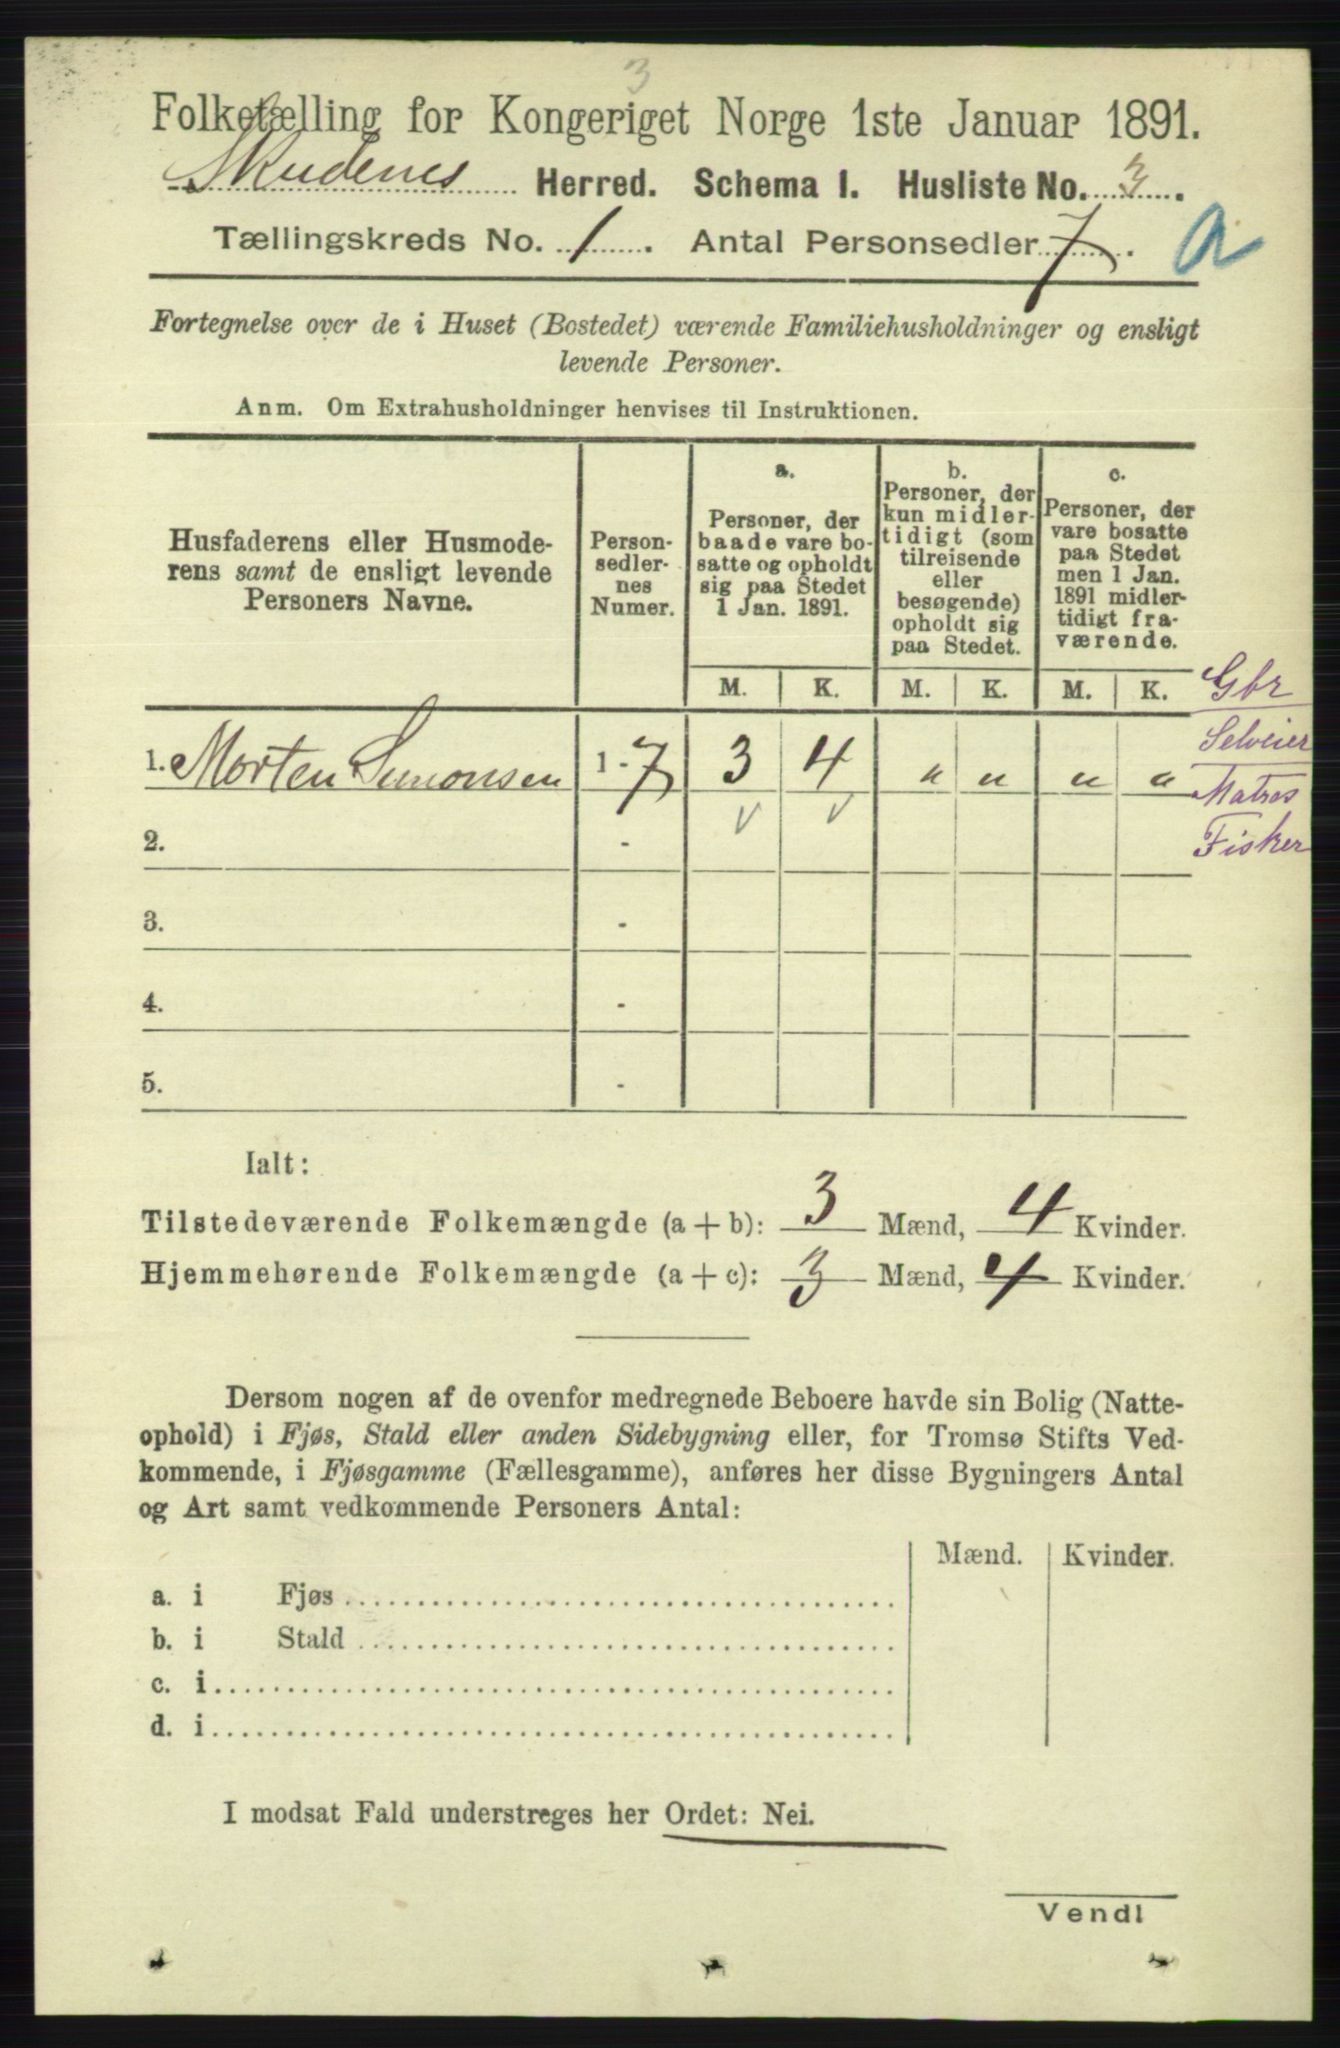 3
Folketælling for Kongeriget Norge 1ste Januar 1891.
Skudenes Herred. Schema I. Husliste No. 3.
Tællingskreds No. 1. Antal Personsedler 7. a
Fortegnelse over de i Huset (Bostedet) værende Familiehusholdninger og ensligt
levende Personer.
Anm. Om Extrahusholdninger henvises til Instruktionen.
Husfaderens eller Husmode-
rens samt de ensligt levende
Personers Navne.
Person-
sedler-
nes
Numer.
a.
Personer, der
baade vare bo-
satte og opholdt
sig paa Stedet
1 Jan. 1891.
b.
Personer, der
kun midler-
tidigt (som
tilreisende
eller
besøgende)
opholdt sig
paa Stedet.
c.
Personer, der
vare bosatte
paa Stedet
men 1 Jan.
1891 midler-
tidigt fra-
værende.
M. K. M. K. M. K.
Gbr
Selveier
Matros
Fisker
1. Morten Simonsen 1 - 7 3 4 " " " "
2. -
3. -
4. -
5. -
Ialt:
Tilstedeværende Folkemængde (a + b): 3 Mænd, 4 Kvinder.
Hjemmehørende Folkemængde (a + c): 3 Mænd, 4 Kvinder.
Dersom nogen af de ovenfor medregnede Beboere havde sin Bolig (Natte-
ophold) i Fjøs, Stald eller anden Sidebygning eller, for Tromsø Stifts Ved-
kommende, i Fjøsgamme (Fællesgamme), anføres her disse Bygningers Antal
og Art samt vedkommende Personers Antal:
Mænd. Kvinder.
a. i Fjøs
b. i Stald
c. i
d. i
I modsat Fald understreges her Ordet: Nei.
Vend!